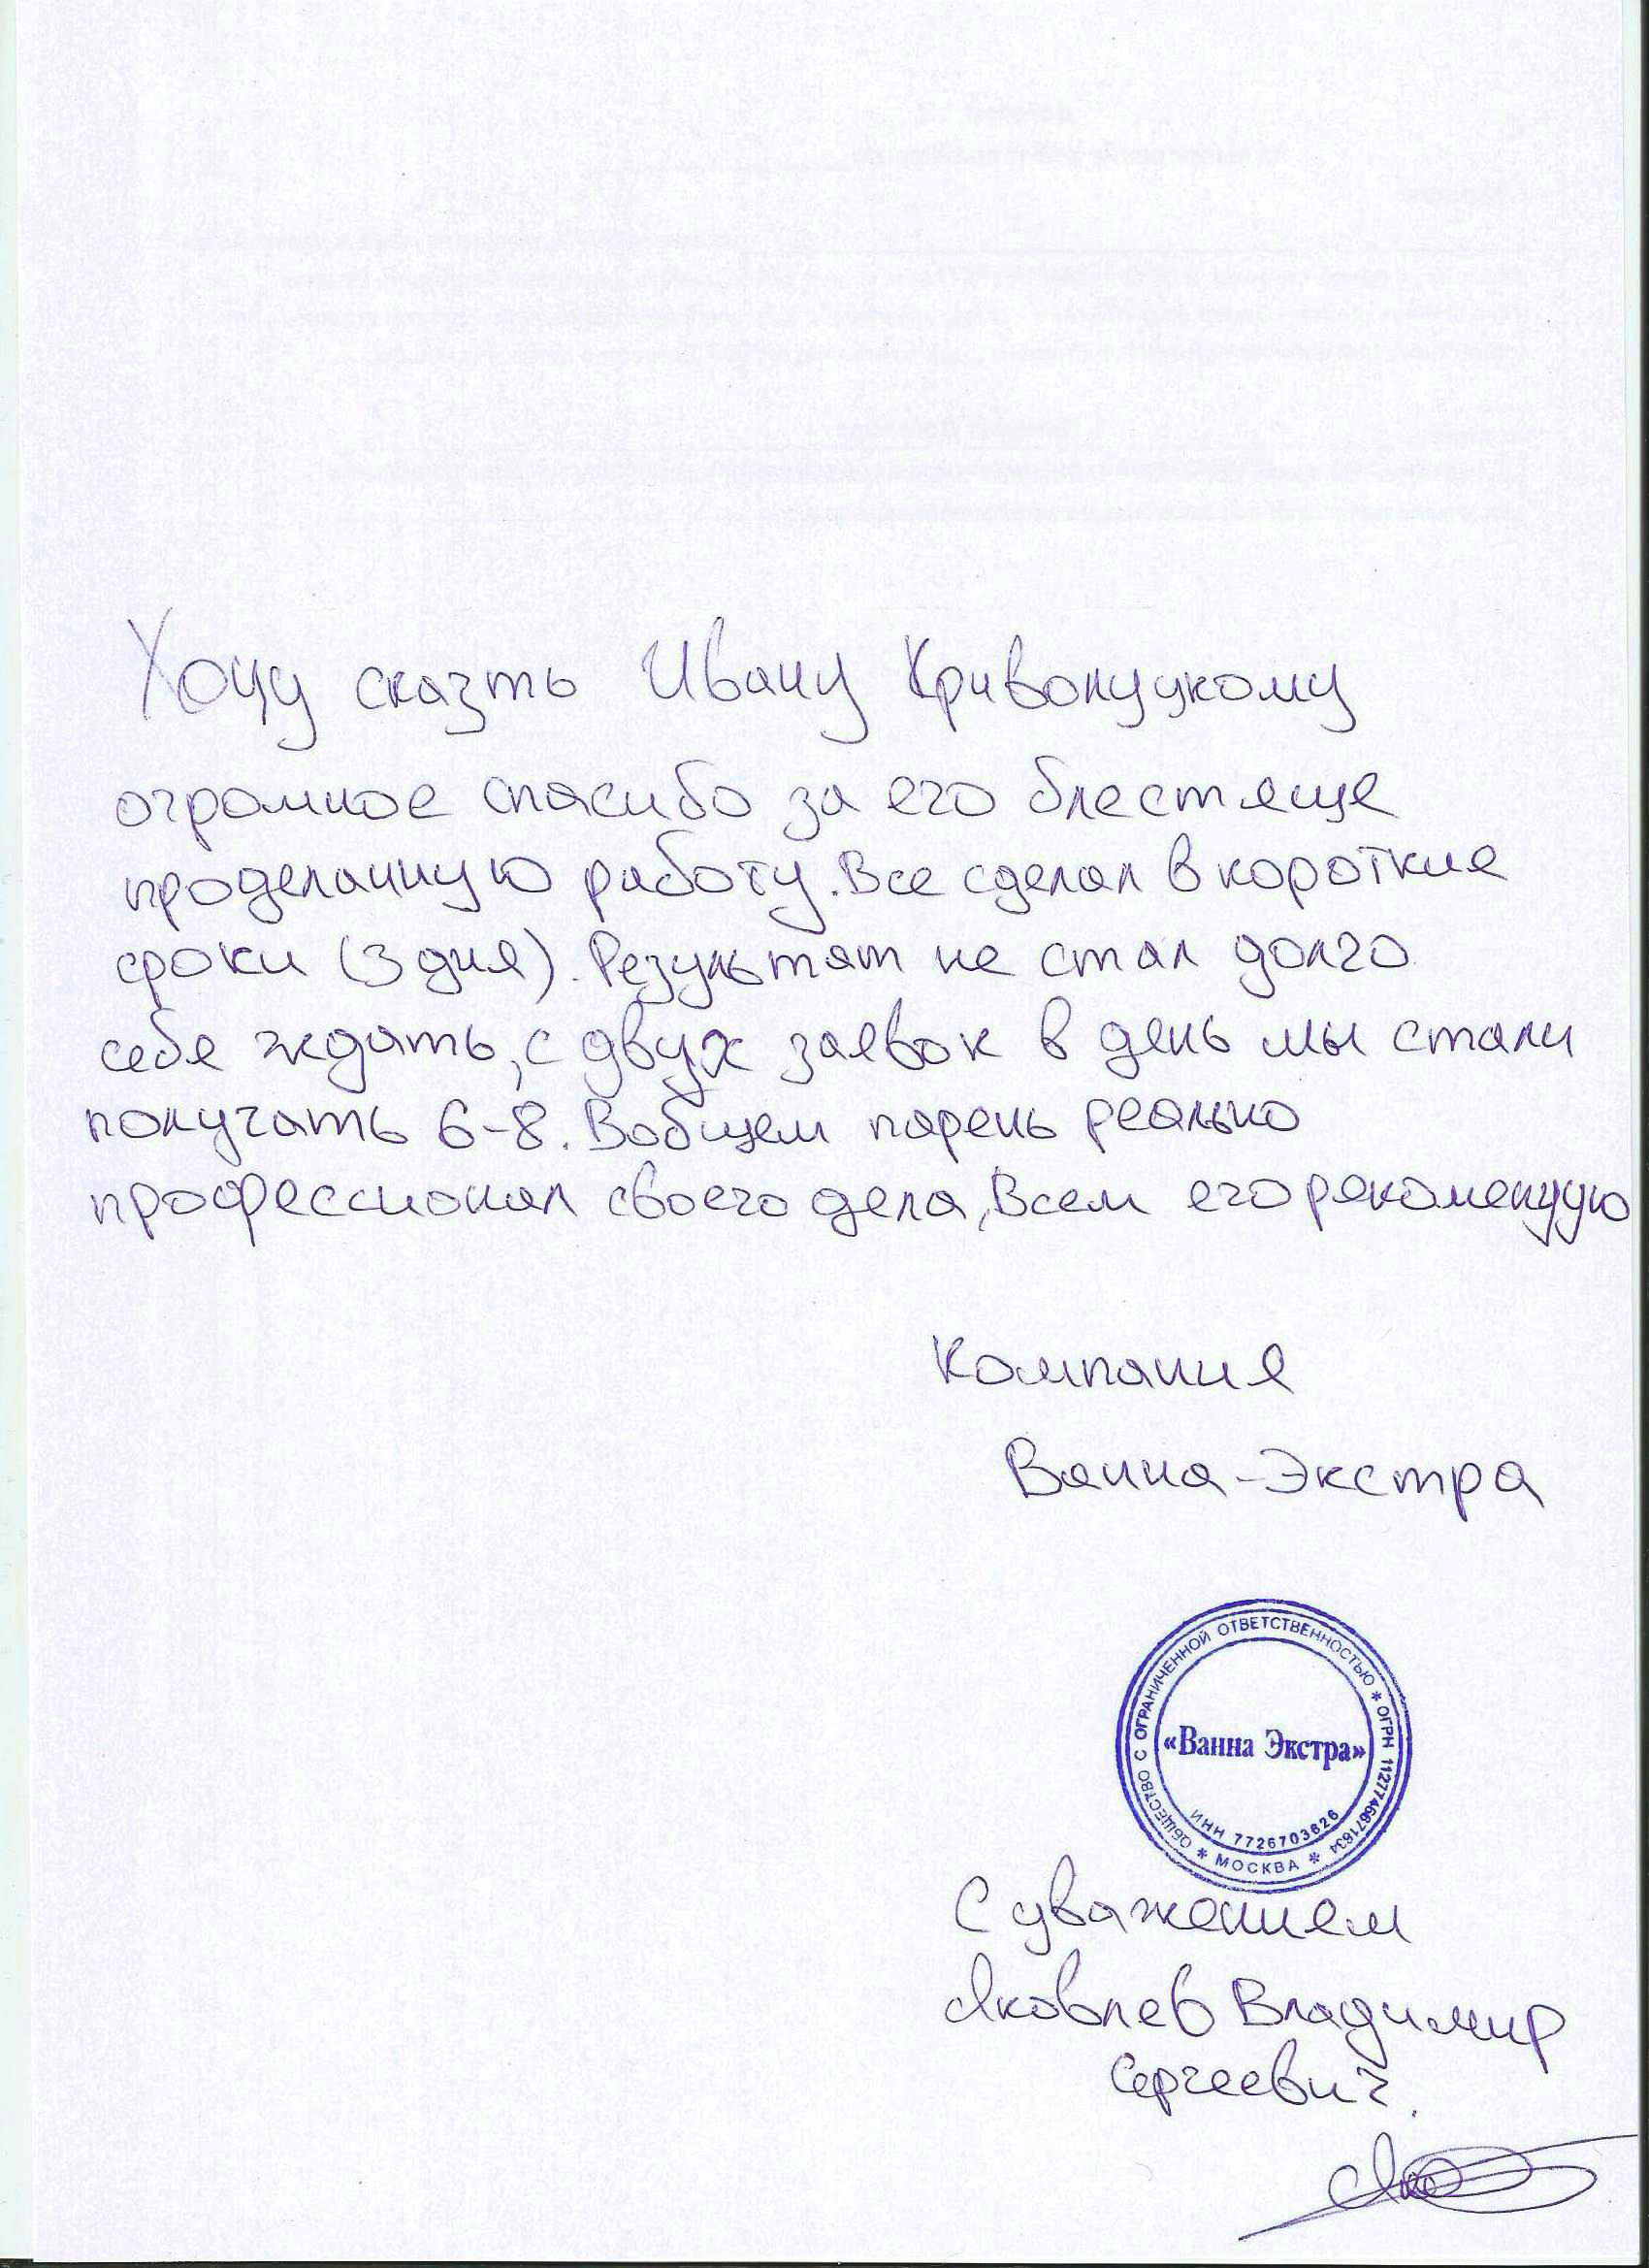 Хочу сказть Ивану Криволуцкому
огромное спасибо за его блестяще
проделанную работу. Все сделал в короткие
сроки (3 дня). Результат не стал долго
себя ждать, с двух заявок в день мы стали
получать 6-8. Вобщем парень реально
профессионал своего дела, Всем его рекомендую
Компания
Ванна-Экстра
ОБЩЕСТВО С ОГРАНИЧЕННОЙ ОТВЕТСТВЕННОСТЬЮ * ОГРН 1127746671634
«Ванна Экстра»
ИНН 7726703626
* МОСКВА *
С уважением
Яковлев Владимир
Сергеевич.